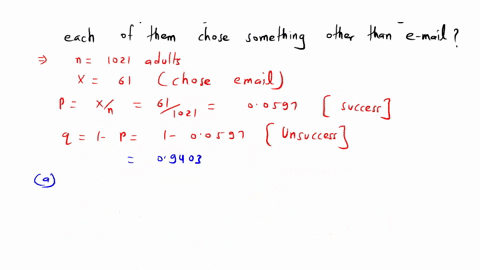 each of them chose something other than e-mail?
⇒ n = 1021 adults
X = 61 (chose email)
P = x/n = 61/1021 = 0.0597 [success]
q = 1 - P = 1 - 0.0597 [Unsuccess]
= 0.9403
(a)